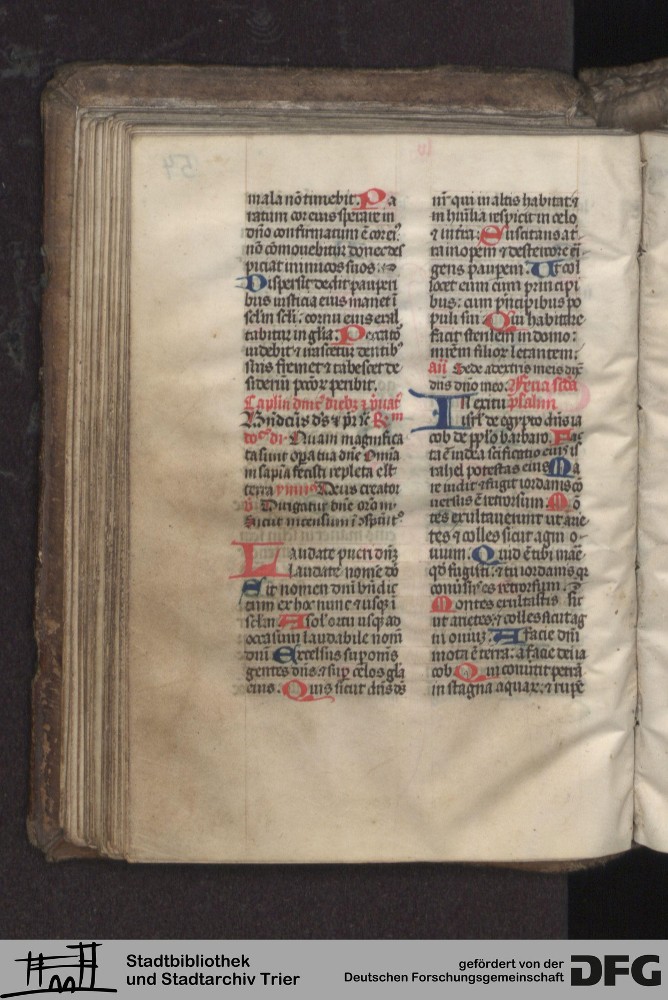 mala nō timebit. Pa
ratum cor eius sperare in
dn̄o confirmatum ē cor ei⁹
nō cōmovebitur donec des
piciat inimicos suos.
Dispersit dedit pauperi
bus iusticia eius manet ī
sc̄lm sc̄li: cornu eius exal
tabitur in gl̄ia. Peccatō
videbit ⁊ irascetur dentib⁹
suis fremet ⁊ tabescet de
siderīu pc̄cōr peribit.
Bn̄dictus d̄s ⁊ pr̄
Quam magnifica
ta sunt opera tua dn̄e Omīa
in sapīa fecisti repleta est
terra ymn⁹ Deus creator
v̄ Dirigatur dn̄e orō m̄
Sicut incensum ī
Laudate pueri dn̄ꝫ
laudate nomē dō
Sit nomen dn̄i bn̄dic
tum ex hoc nunc ⁊ usqꝫ ī
sc̄lm A sol' ortu usqꝫ ad
occasum laudabile nom̄
dn̄i Excelsus sup om̄s
gentes dn̄s: ⁊ sup celos gl̄a
eius. Quis sicut dn̄s d̄s
nr̄ qui in altis habitat: ⁊
in hūilia respicit in celo
⁊ in terra: Suscitans a t̄
ra inopem ⁊ de stercore ē
gens paupem. Ut col
locet eum cum principi
bus: cum prīcipibus po
puli sui: Qui habitare
facit sterilem in domo:
mr̄em filior letantem:
añ Sede a dextris meis dix̄
dn̄s dn̄o meo. Feria scd̄a
In exitu psalm
isrl̄ de egypto dn̄s ia
cob de pp̄lo barbaro. Fac
ta ē iudea sc̄ificatio eius is
rahel potestas eius Ma
re vidit ⁊ fugit iordanis cō
versus ē retrorsum Mō
tes exultaverunt ut arie
tes ⁊ colles sicut agni o
vium. Quid ē tibi mare
qd̄ fugisti: ⁊ tu iordanis qꝫ
conv̄sus es retrorsum.
Montes exultastis sic̄
ut arietes: ⁊ colles sicut ag
ni oviūꝫ. A facie dn̄i
mota ē terra: a facie dei ia
cob Qui convertit petrā
in stagna aquar: ⁊ rupē
Stadtbibliothek
und Stadtarchiv Trier
gefördert von der
Deutschen Forschungsgemeinschaft
DFG